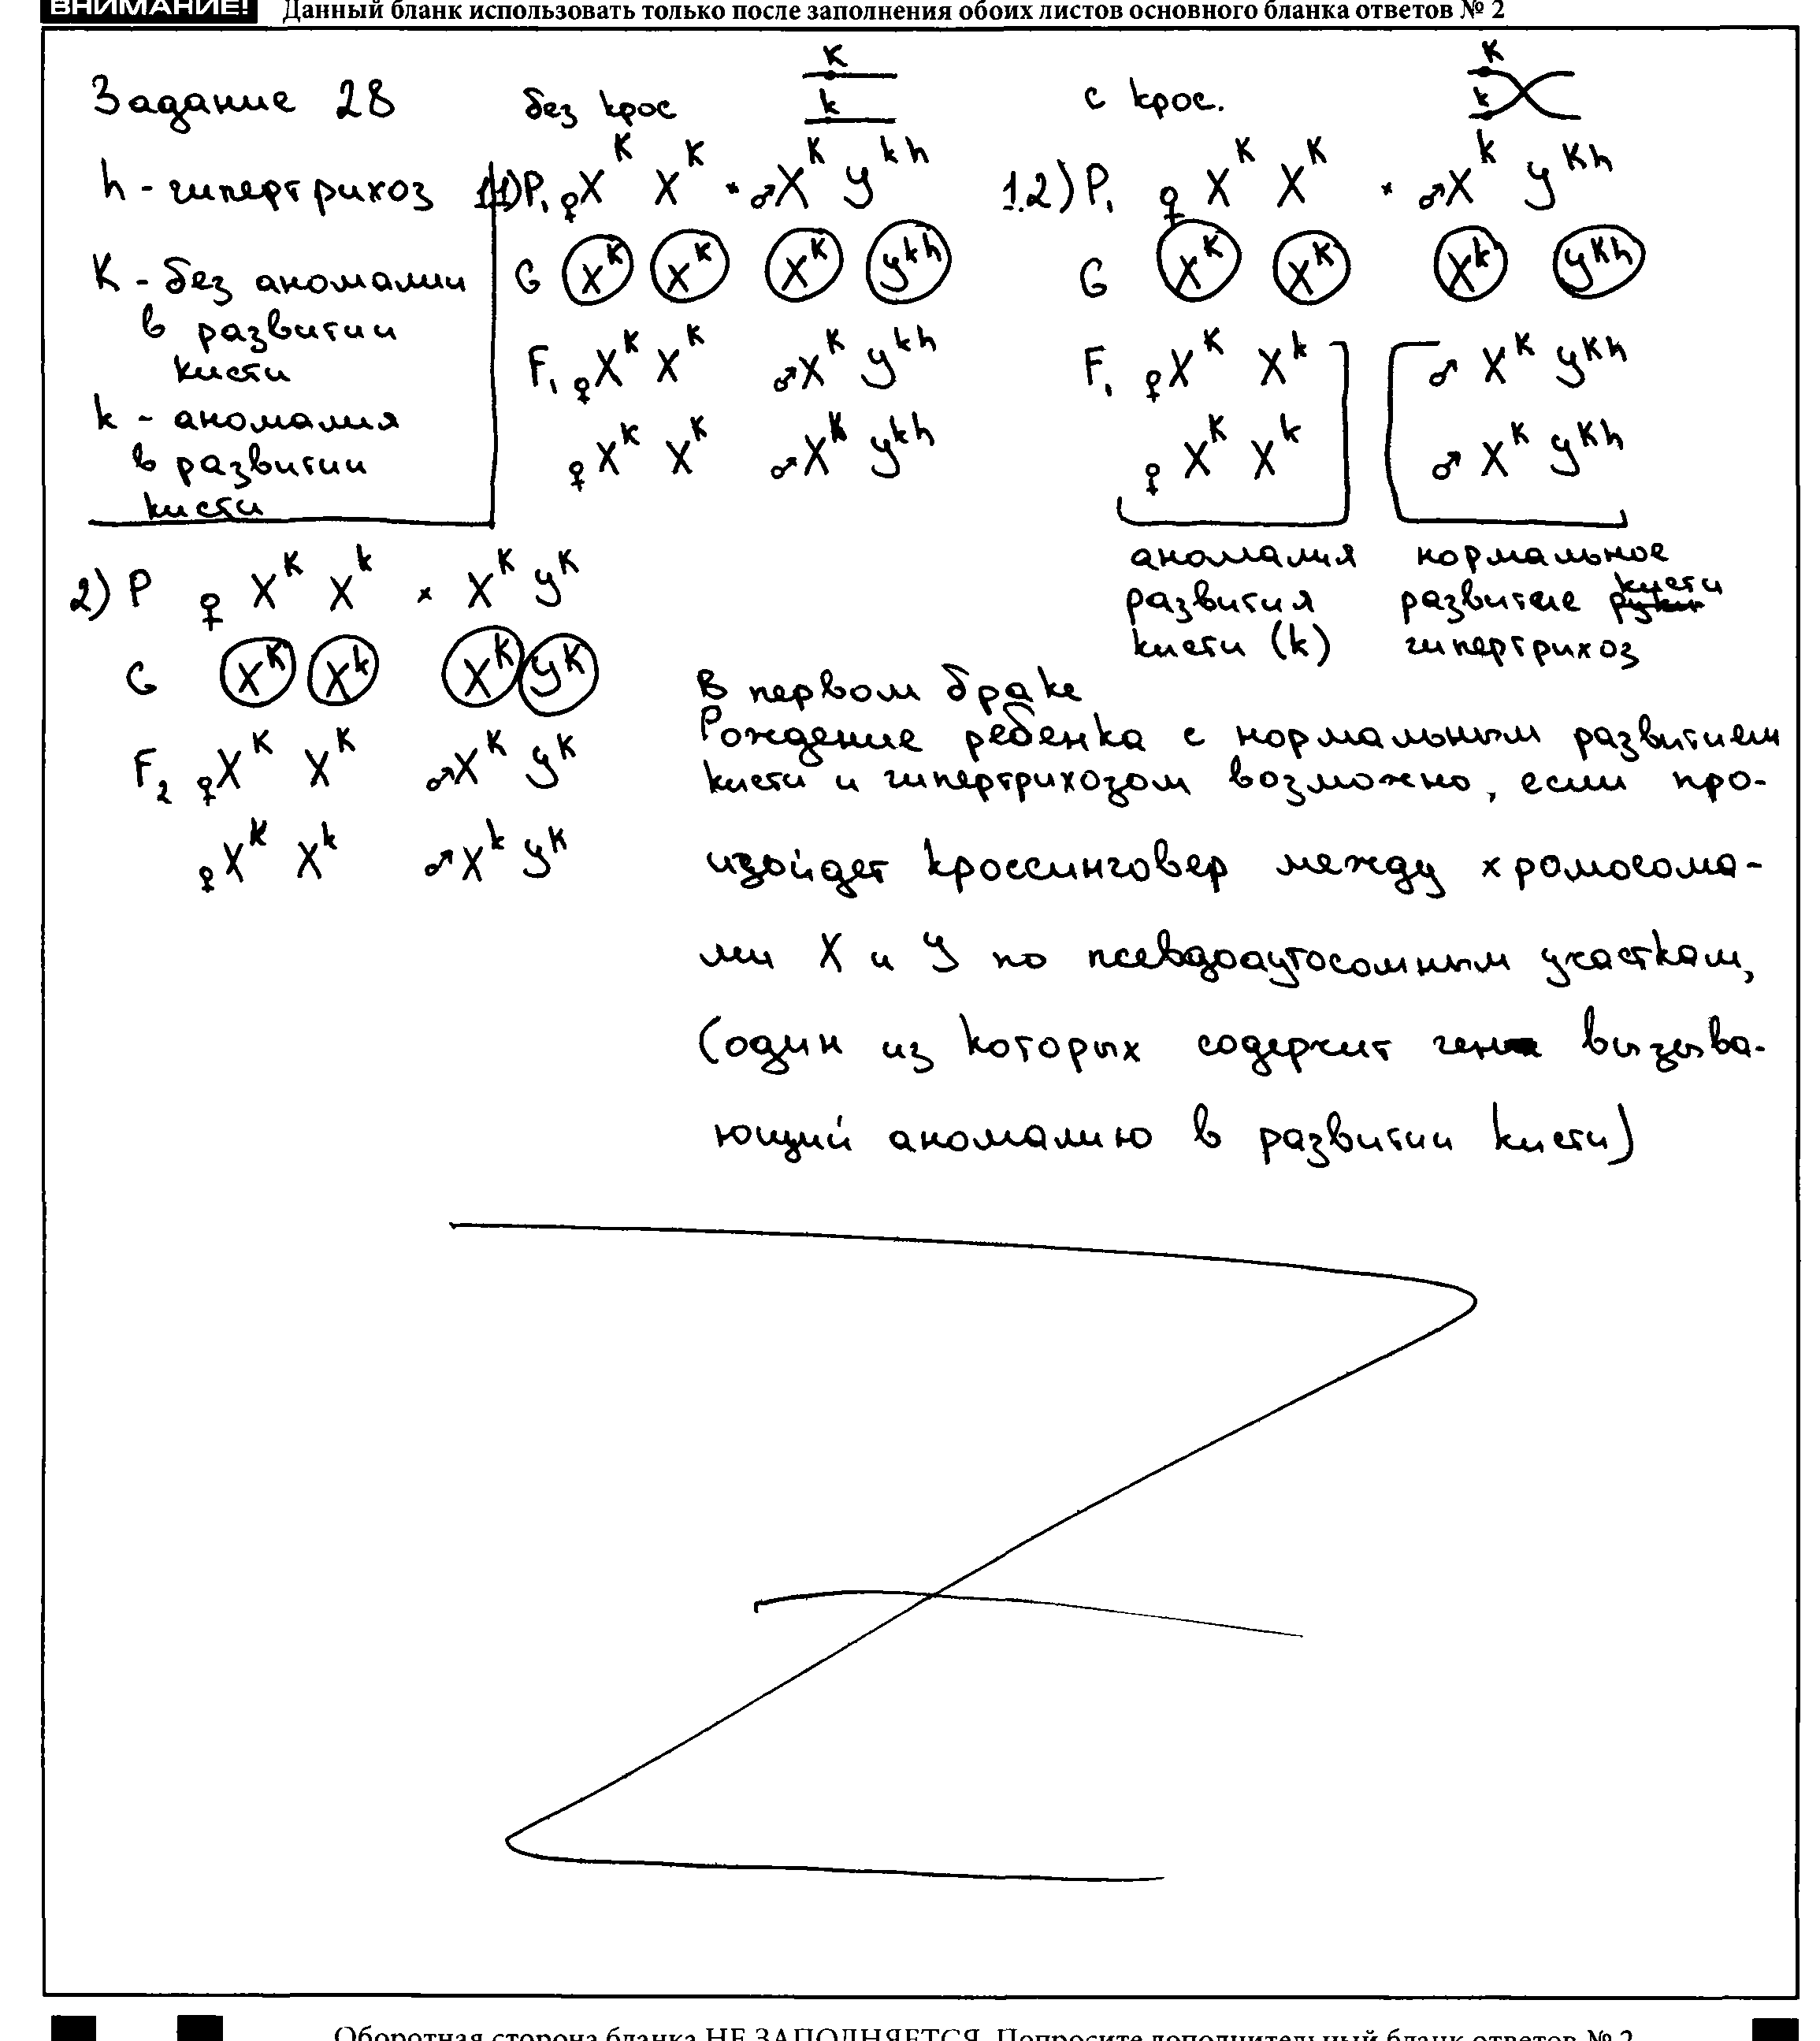 ВНИМАНИЕ! Данный бланк использовать только после заполнения обоих листов основного бланка ответов № 2
Задание 28
h - гипертрихоз
K - без аномалии
в развитии
кисти
k - аномалия
в развитии
кисти
без крос K k
1.1) P₁ ♀X^K X^K × ♂X^K y^kh
G X^K X^K X^K y^kh
F₁ ♀X^K X^K ♂X^K y^kh
♀X^K X^K ♂X^K y^kh
с крос. K k
1.2) P₁ ♀ X^K X^K × ♂X^k y^Kh
G X^K X^K X^k y^Kh
F₁ ♀X^K X^k ♂ X^K y^Kh
♀ X^K X^k ♂ X^K y^Kh
аномалия
развития
кисти (k)
нормальное
развитие кисти
гипертрихоз
2) P ♀ X^K X^k × X^K y^K
G X^K X^k X^K y^K
F₂ ♀X^K X^K ♂X^K y^K
♀X^K X^k ♂X^k y^K
В первом браке
Рождение ребенка с нормальным развитием
кисти и гипертрихозом возможно, если про-
изойдет кроссинговер между хромосома-
ми X и У по псевдоаутосомным участкам,
(один из которых содержит ген вызыва-
ющий аномалию в развитии кисти)
Оборотная сторона бланка НЕ ЗАПОЛНЯЕТСЯ. Попросите дополнительный бланк ответов № 2